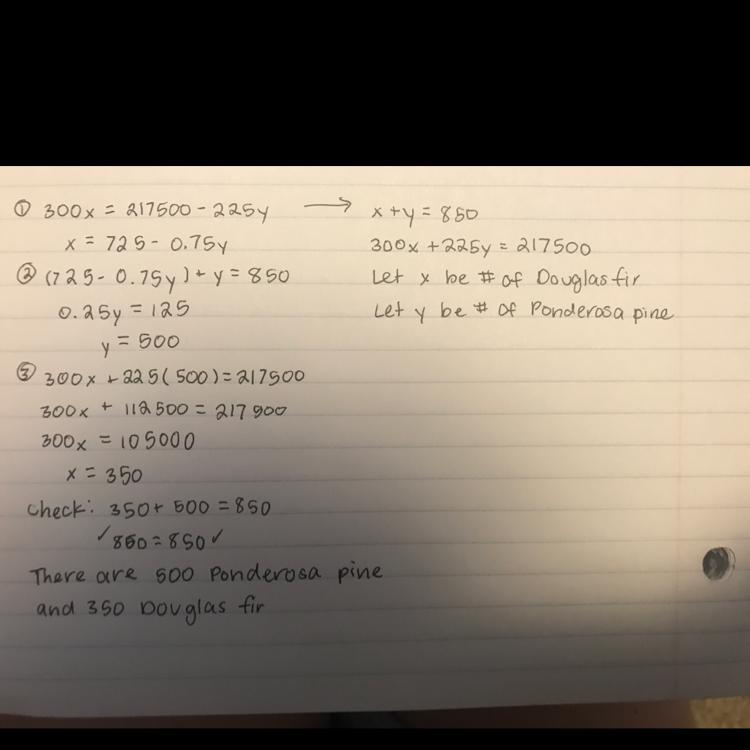 ① 300x = 217500 - 225y → x + y = 850
x = 725 - 0.75y 300x + 225y = 217500
② (725 - 0.75y) + y = 850 Let x be # of Douglas fir
0.25y = 125 Let y be # of Ponderosa pine
y = 500
③ 300x + 225(500) = 217500
300x + 112500 = 217500
300x = 105000
x = 350
Check: 350 + 500 = 850
✓ 850 = 850 ✓
There are 500 Ponderosa pine
and 350 Douglas fir